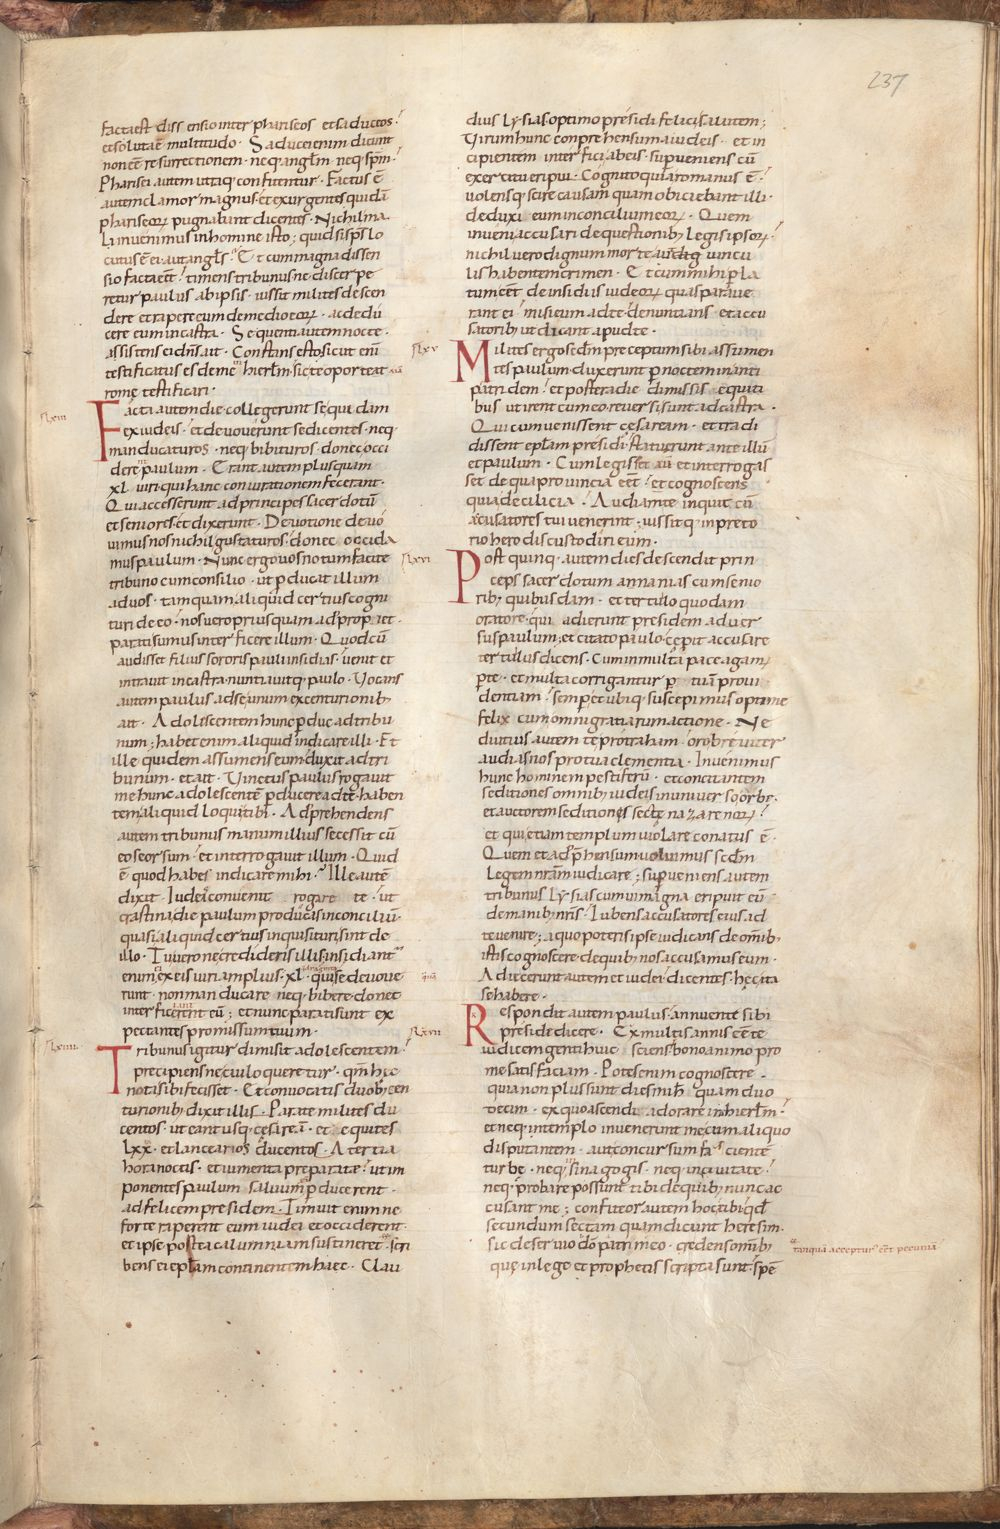 237
facta est dissensio inter phariseos et saduceos·
et soluta ē multitudo · Saducei enim dicunt
non eē resurrectionem · neq; anglm̄ · neq; sp̄m·
Pharisei autem utraq; confitentur · Factus ē
autem clamor magnus· et exurgentes quidā
phariseoꝝ pugnabant dicentes · Nichil ma
li inuenimus in homine isto; quid si sp̄s lo
cutus ē ei aut angl̄s? Et cum magna dissen
sio facta eēt· timens tribunus ne discerpe
retur paulus ab ipsis· iussit milites descen
dere et rapere eum de medio eoꝝ· ac dedu
cere eum in castra · Sequenti autem nocte·
assistens ei dn̄s ait · Constans esto; sicut eni
testificatus es de me hierlm̄· sic te oportet
rome testificari·
Facta autem die collegerunt se quidam
ex iudeis · et deuouerunt se dicentes · neq;
manducaturos · neq; bibituros · donec occi
derent paulum · Erant autem plusquam
xl· uiri qui hanc coniurationem fecerant·
Qui accesserunt ad principes sacerdotū
et seniores· et dixerunt · Deuotione deuo
uimus nos nichil gustaturos· donec occida
mus paulum · Nunc ergo uos notum facite
tribuno cum consilio · ut p̄ducat illum
ad uos · tamquam aliquid certius cogni
turi de eo· nos uero priusquam adpropiet·
parati sumus interficere illum · Quod cū
audisset filius sororis pauli insidias· uenit et
intrauit in castra· nuntiauitq; paulo· Uocans
autem paulus ad se unum ex centurionib;
ait · Adolescentem hunc p̄duc ad tribu
num; habet enim aliquid indicare illi · Et
ille quidem assumens eum duxit ad tri
bunum · et ait · Uinctus paulus rogauit
me hunc adolescentē p̄ducere ad te· haben
tem aliquid loqui tibi · Adprehendens
autem tribunus manum illius secessit cū
eo seorsum · et interrogauit illum · Quid
ē quod habes indicare mihi? Ille autē
dixit · Iudeis conuenit rogare te · ut
crastina die paulum producas in conciliū·
quasi aliquid certius inquisituri sint de
illo · Tu uero ne credideris illis· insidiant
enim ei ex eis uiri amplius ·xl· qui se deuoue
runt · non manducare neq; bibere donec
interficerent eū; et nunc parati sunt ex
pectantes promissum tuum·
Tribunus igitur dimisit adolescentem·
precipiens ne cui loqueretur · qm̄ hec
nota sibi fecisset · Et conuocatis duob; cen
turionib; dixit illis · Parate milites du
centos· ut eant usq; cesareā · et equites
lxx· et lancearios ducentos · A tertia
hora noctis· et iumenta preparate· ut im
ponentes paulum saluum p̄ducerent·
ad felicem presidem · Timuit enim ne
forte raperent eum iudei et occiderent·
et ipse postea calumniam sustineret· scri
bens ei ep̄lam continentem haec · Clau
dius lysias optimo presidi felici salutem;
Uirum hunc conprehensum a iudeis · et in
cipientem interfici ab eis· superueniens cū
exercitu eripui· Cognito quia romanus ē·
uolensq; scire causam quam obiciebant illi·
deduxi eum in concilium eoꝝ · Quem
inueni accusari de questionib; legis ipsoꝝ·
nichil uero dignum morte aut uincu
lis habentem crimen · Et cum mihi perla
tum eēt de insidiis iudeoꝝ quas paraue
rant ei· misi eum ad te· denuntians et accu
satorib; ut dicant apud te ·
Milites ergo sc̄dm preceptum sibi assumen
tes paulum· duxerunt p̄ noctem in anti
patridem · et postera die dimissis equiti
bus ut irent cum eo· reuersi sunt ad castra ·
Qui cum uenissent cesaream · et tradi
dissent ep̄lam presidi· statuerunt ante illū
et paulum · Cum legisset aū et interrogas
set de qua prouincia eēt· et cognoscens
quia de cilicia · Audiam te inquit cū
accusatores tui uenerint· iussitq; in preto
rio herodis custodiri eum·
Post quinq; autem dies descendit prin
ceps sacerdotum annanias cum senio
rib; quibusdam · et tertulo quodam
oratore· qui adierunt presidem aduer
sus paulum; et citato paulo· cepit accusare
tertulus dicens· Cum in multa pace agam;
p̄ te · et multa corrigantur p̄ tuā proui
dentiam· semper et ubiq; suscepimus optime
felix cum omni gratiarum actione · Ne
diutius autem te protraham· oro breuiter
audias nos pro tua clementia · Inuenimus
hunc hominem pestiferū · et concitantem
seditiones omnib; iudeis in uniuerso orbe·
et auctorem seditionis secte nazarenoꝝ·
et qui etiam templum uiolare conatus ē·
Quem et adp̄hensum uoluimus sc̄dm
legem nr̄am iudicare; superueniens autem
tribunus lysias cum ui magna eripuit eū
de manib; nr̄is· Iubens accusatores eius ad
te uenire; a quo poteris ipse iudicans de omib;
istis cognoscere· de quib; nos accusamus eum·
Adiecerunt autem et iudei dicentes· hec ita
se habere·
Respondit autem paulus· annuente sibi
preside dicere · Ex multis annis eē te
iudicem genti huic sciens· bono animo pro
me satisfaciam · Potes enim cognoscere·
quia non plus sunt dies mihi quam duo
decim· ex quo ascendi adorare in hierlm̄·
et neq; in templo inuenerunt me cum aliquo
disputantem · aut concursum facientē
turbe· neq; in sinagogis· neq; in ciuitate·
neq; probare possunt tibi de quib; nunc ac
cusant me; confiteor autem hoc tibi· qd̄
secundum sectam quam dicunt heresim·
sic deseruio dō patri meo· credens omīb;
que in lege et prophetis scripta sunt· spē
tanquā acceptur; eēt pecuniā